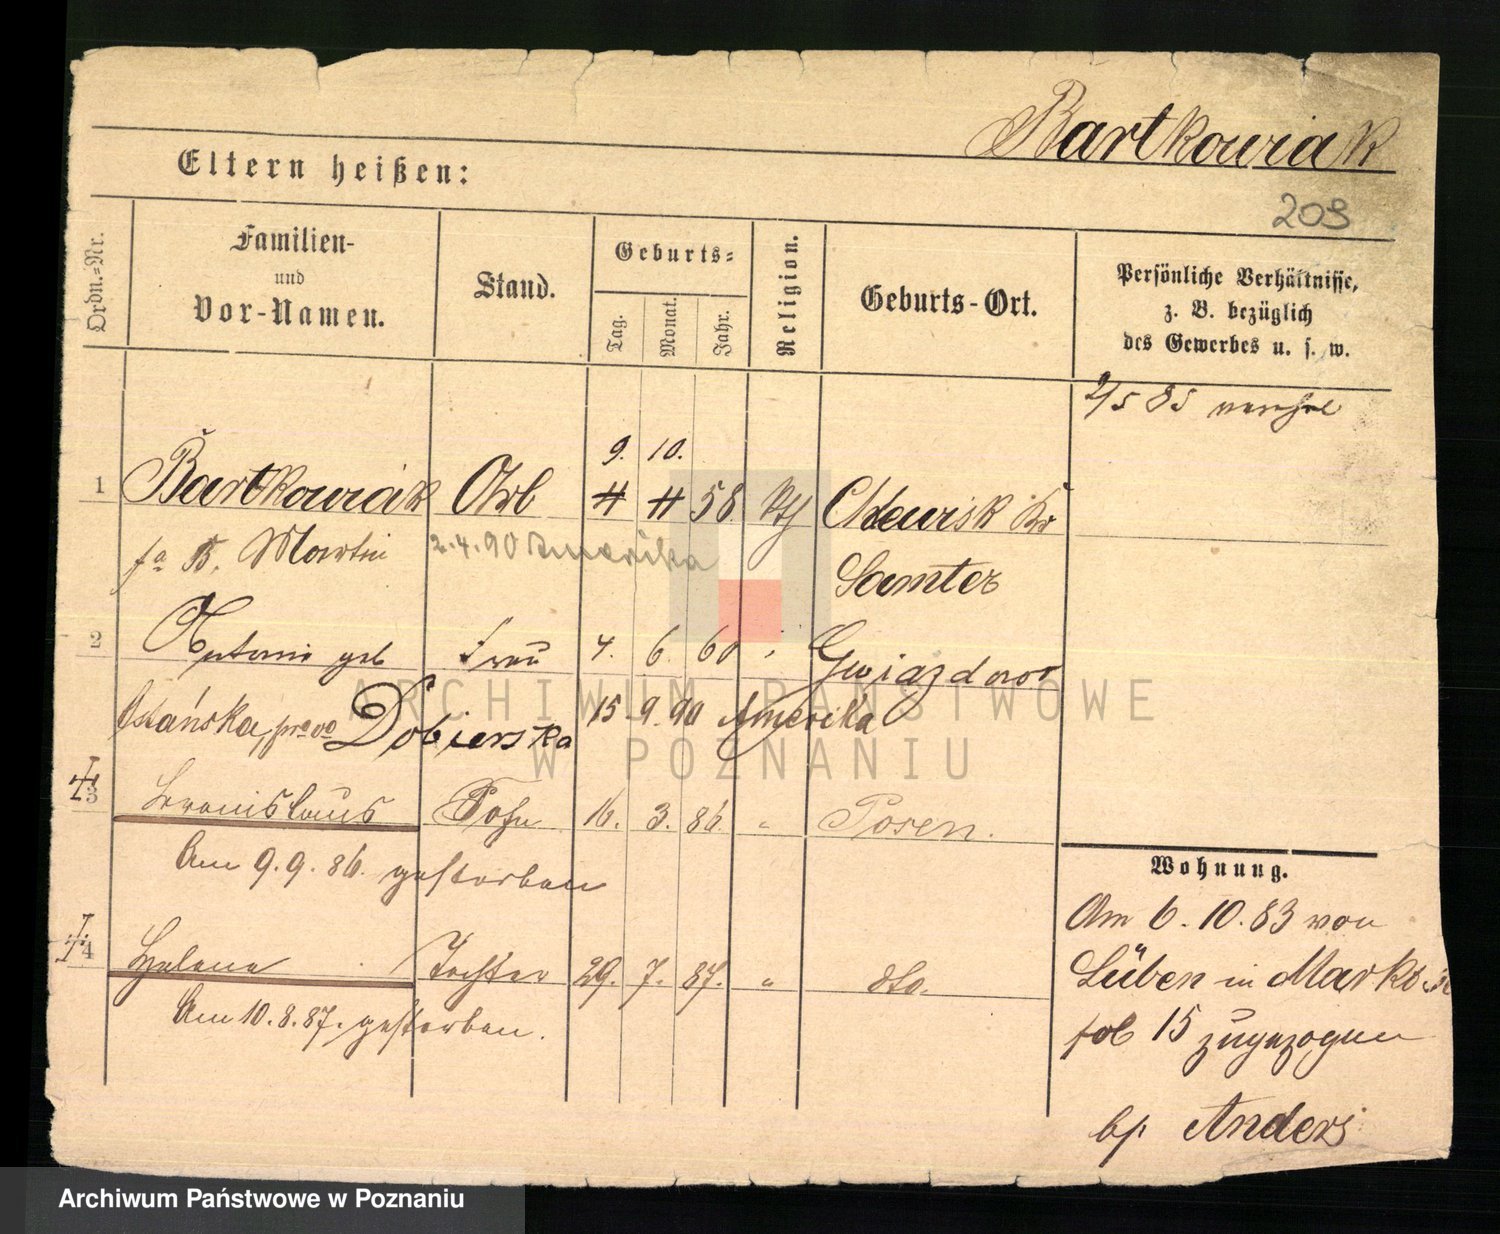 Bartkowiak
Eltern heißen:
209
Ordn.=Nr.
Familien-
und
Vor-Namen.
Stand.
Geburts=
Tag.
Monat.
Jahr.
Religion.
Geburts-Ort.
Persönliche Verhältnisse,
z. B. bezüglich
des Gewerbes u. s. w.
2/5 85
9. 10.
1 Bartkowiak Arb 58 kth Chlewisk Kr
Martin 2.4.90 Amerika Samter
2 Antonie geb Frau 4. 6. 60 Gwiazdowo
Ostańska, Dobierska 15.9.90 Amerika
3 Bronislaus Sohn 16. 3. 86. " Posen.
Am 9.9.86. gestorben
4 Helene Tochter 29. 7. 87. " dto.
Am 10.8.87. gestorben.
Wohnung.
Am 6.10.83 von
Lüben in
15 zugezogen
bp Anders
ARCHIWUM PAŃSTWOWE
W POZNANIU
Archiwum Państwowe w Poznaniu